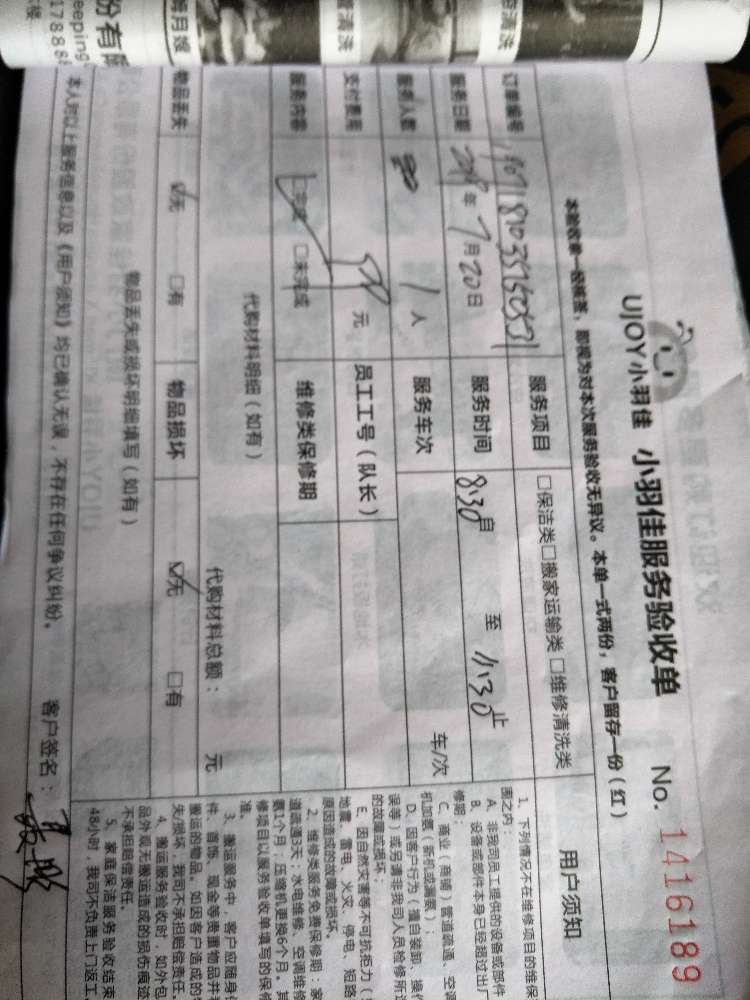 UJOY小羽佳 小羽佳服务验收单 No. 1416189
本验收单一经核签，即视为对本次服务验收无异议。本单一式两份，客户留存一份（红）
订单编号 服务项目 □保洁类□搬家运输类□维修清洗类
服务日期 年7月20日 服务时间 8:30自 至 11:30止
服务人数 1人 服务车次 车/次
支付费用 元 员工工号（队长）
服务内容 □完成 □未完成 维修类保修期
代购材料明细（如有）
代购材料总额： 元
物品丢失 □无 □有 物品损坏 □无 □有
物品丢失或损坏明细填写（如有）
本人对以上服务信息以及《用户须知》均已确认无误，不存在任何争议纠纷。 客户签名：
用户须知
1、下列情况不在维修项目的维保
围之内：
A、非我司员工提供的设备或部件
B、设备或部件本身已经超过出厂
修期；
C、商业（商铺）管道疏通、空调
机加氨（新机或漏氨）；
D、因客户行为（擅自装卸、操作
误等）或另请非我司人员检修所造
的故障或损坏；
E、因自然灾害等不可抗拒力（
地震、雷电、火灾、停电、短路
原因造成的故障或损坏。
2、维修类服务免费保修期：家
道疏通3天，水电维修、空调维修
氨1个月；压缩机更换6个月。其
修项目以服务验收单填写的保修
准。
3、搬运服务中，客户应随身
件、首饰、现金等贵重物品并
搬运的物品。如因客户造成的
失/损坏，我司不承担赔偿责任。
4、搬运服务验收时，如外包
品外观无搬运造成的损伤痕迹
不承担赔偿责任。
5、家庭保洁服务验收结束
48小时，我司不负责上门返工
份有限
eeping
178888
月嫂
清洗
清洗